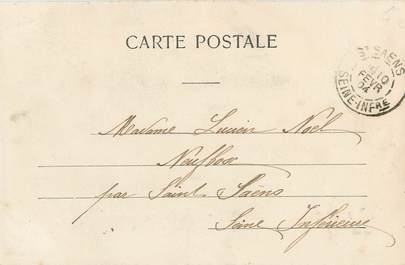 CARTE POSTALE
SAENS
10
FEVR
04
SEINE-INFRE
Madame Lucien Noël
Neufbosc
par Saint-Saëns
Seine Inférieure